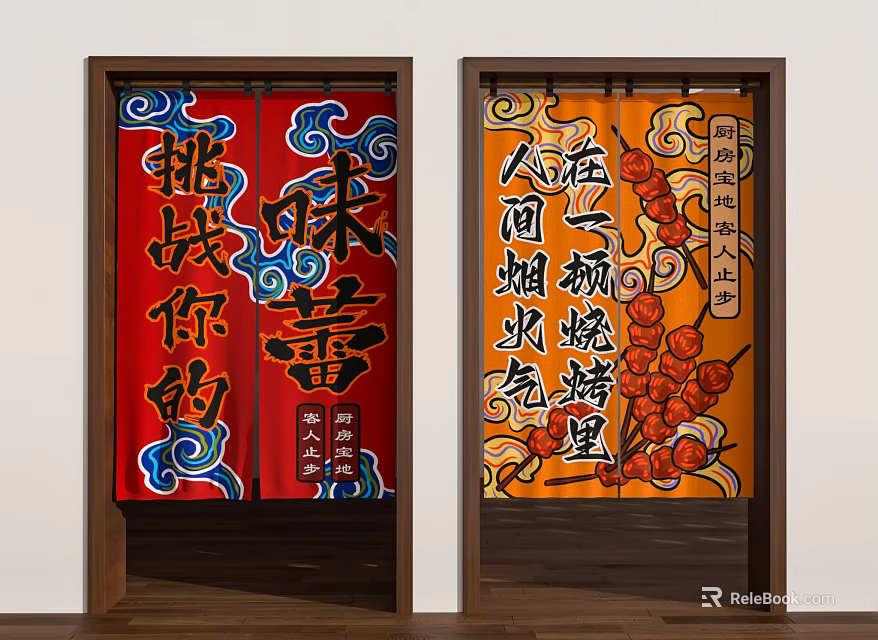 挑战你的
味蕾
厨房宝地
客人止步
人间烟火气
在一顿烧烤里
厨房宝地 客人止步
ReleBook.com